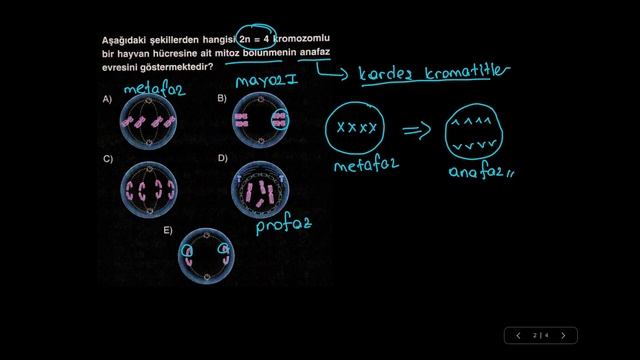 Aşağıdaki şekillerden hangisi 2n = 4 kromozomlu
bir hayvan hücresine ait mitoz bölünmenin anafaz
evresini göstermektedir?
kardeş kromatitler
metafaz
mayoz I
A)
B)
xxxx
metafaz
anafaz,,
C)
D)
profaz
E)
2 | 4